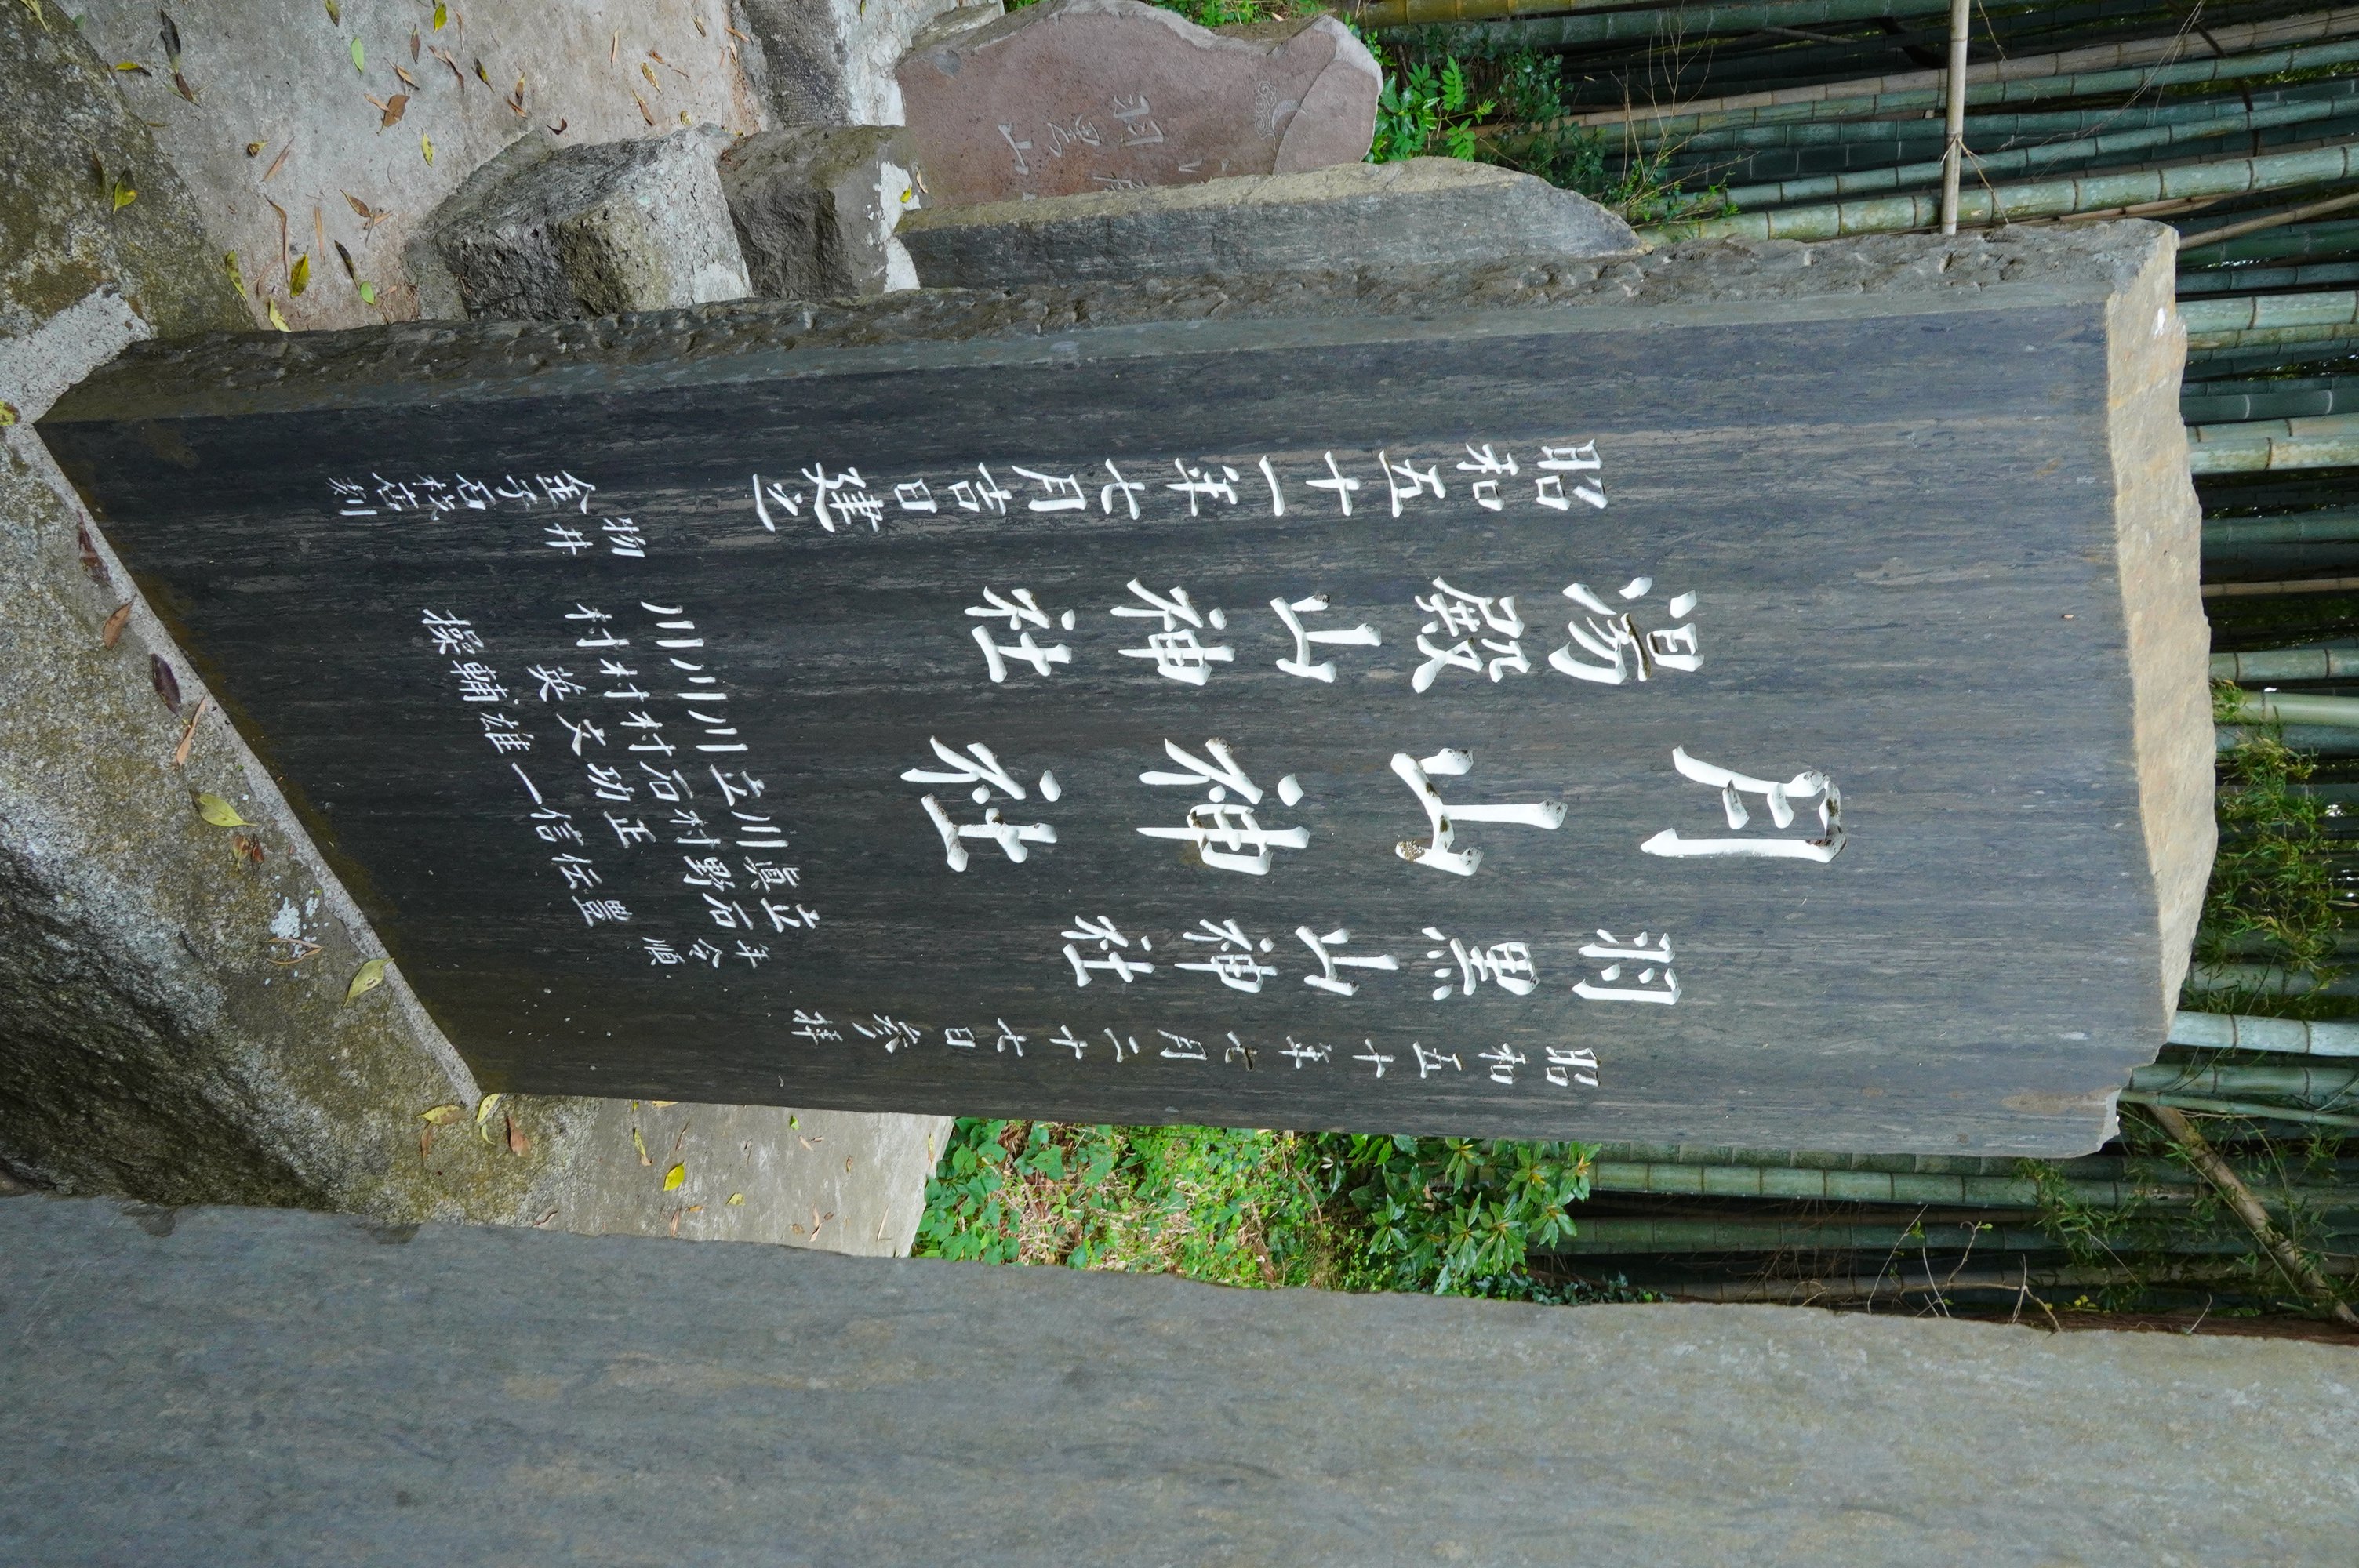 昭和五十年七月二十七日参拝
羽黒山神社
月山神社
湯殿山神社
昭和五十一年七月吉日建之
年令順
立石豊
眞野伝
川村正信
立石功一
川村文雄
川村英輔
川村操
物井
金子石材店刻
羽黒山